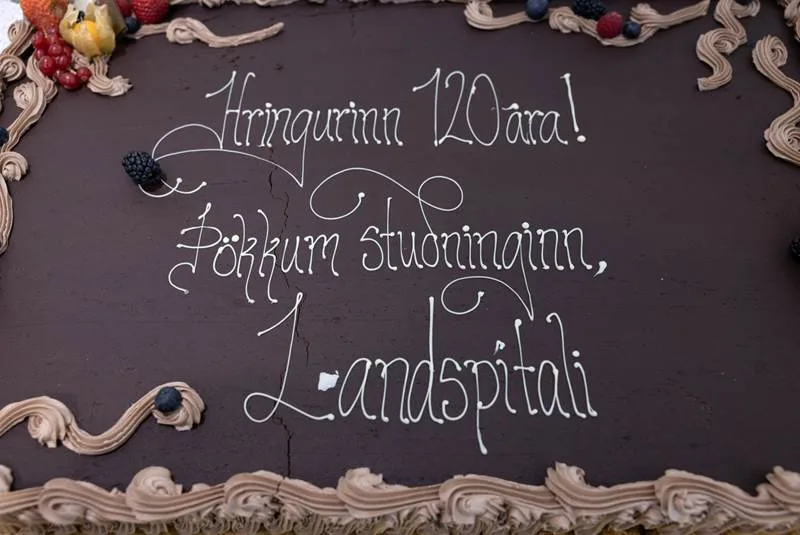 Hringurinn 120 ára!
Þökkum studninginn,
Landspítali